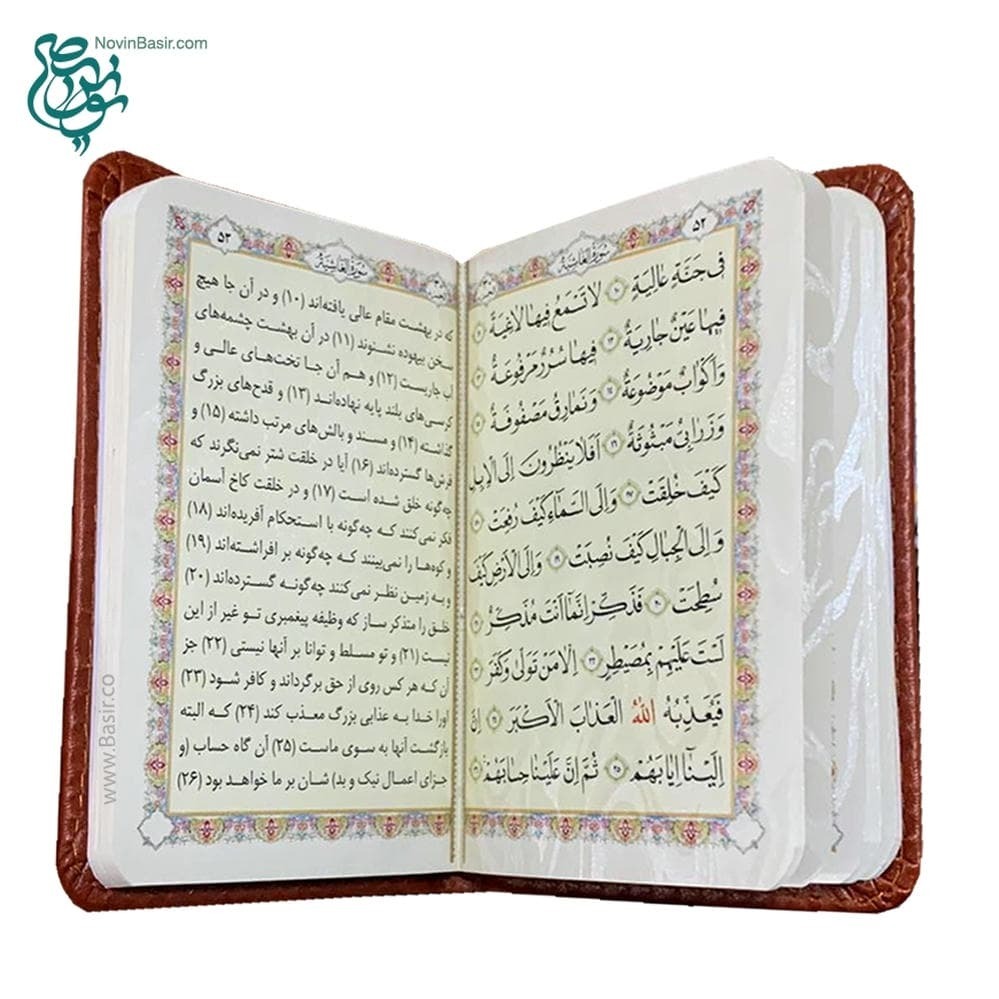 NovinBasir.com
۵۲
سُورَةُ الْغَاشِيَةِ
فِي جَنَّةٍ عَالِيَةٍ ۱۰ لَا تَسْمَعُ فِيهَا لَاغِيَةً
فِيهَا عَيْنٌ جَارِيَةٌ ۱۲ فِيهَا سُرُرٌ مَرْفُوعَةٌ
وَأَكْوَابٌ مَوْضُوعَةٌ ۱۴ وَنَمَارِقُ مَصْفُوفَةٌ
وَزَرَابِيُّ مَبْثُوثَةٌ ۱۶ أَفَلَا يَنْظُرُونَ إِلَى الْإِبِلِ
كَيْفَ خُلِقَتْ ۱۷ وَإِلَى السَّمَاءِ كَيْفَ رُفِعَتْ
وَإِلَى الْجِبَالِ كَيْفَ نُصِبَتْ ۱۹ وَإِلَى الْأَرْضِ كَيْفَ
سُطِحَتْ ۲۰ فَذَكِّرْ إِنَّمَا أَنْتَ مُذَكِّرٌ
لَسْتَ عَلَيْهِمْ بِمُصَيْطِرٍ ۲۲ إِلَّا مَنْ تَوَلَّىٰ وَكَفَرَ
فَيُعَذِّبُهُ اللَّهُ الْعَذَابَ الْأَكْبَرَ ۲۴ إِنَّ
إِلَيْنَا إِيَابَهُمْ ۲۵ ثُمَّ إِنَّ عَلَيْنَا حِسَابَهُمْ
۵۳
سُورَةُ الْغَاشِيَةِ
که در بهشت مقام عالی یافته‌اند (۱۰) و در آن جا هیچ
سخن بیهوده نشنوند (۱۱) در آن بهشت چشمه‌های
آب جاریست (۱۲) و هم آن جا تخت‌های عالی و
کرسی‌های بلند پایه نهاده‌اند (۱۳) و قدح‌های بزرگ
گذاشته (۱۴) و مسند و بالش‌های مرتب داشته (۱۵) و
فرش‌ها گسترده‌اند (۱۶) آیا در خلقت شتر نمی‌نگرند که
چه‌گونه خلق شده است (۱۷) و در خلقت کاخ آسمان
فکر نمی‌کنند که چه‌گونه با استحکام آفریده‌اند (۱۸)
و کوه‌ها را نمی‌بینند که چه‌گونه بر افراشته‌اند (۱۹)
و به زمین نظر نمی‌کنند چه‌گونه گسترده‌اند (۲۰)
خلق را متذکر ساز که وظیفه پیغمبری تو غیر از این
نیست (۲۱) و تو مسلط و توانا بر آنها نیستی (۲۲) جز
آن که هر کس روی از حق برگرداند و کافر شود (۲۳)
اورا خدا به عذابی بزرگ معذب کند (۲۴) که البته
بازگشت آنها به سوی ماست (۲۵) آن گاه حساب (و
جزای اعمال نیک و بد) شان بر ما خواهد بود (۲۶)
www.Basir.co